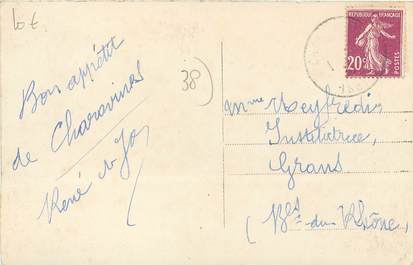 10 €
Bon appétit
de Charavines
René et Jo
38
RÉPUBLIQUE FRANÇAISE
20c
POSTES
Mme Meyfredis
Institutrice,
Grans
(Bes du Rhône)